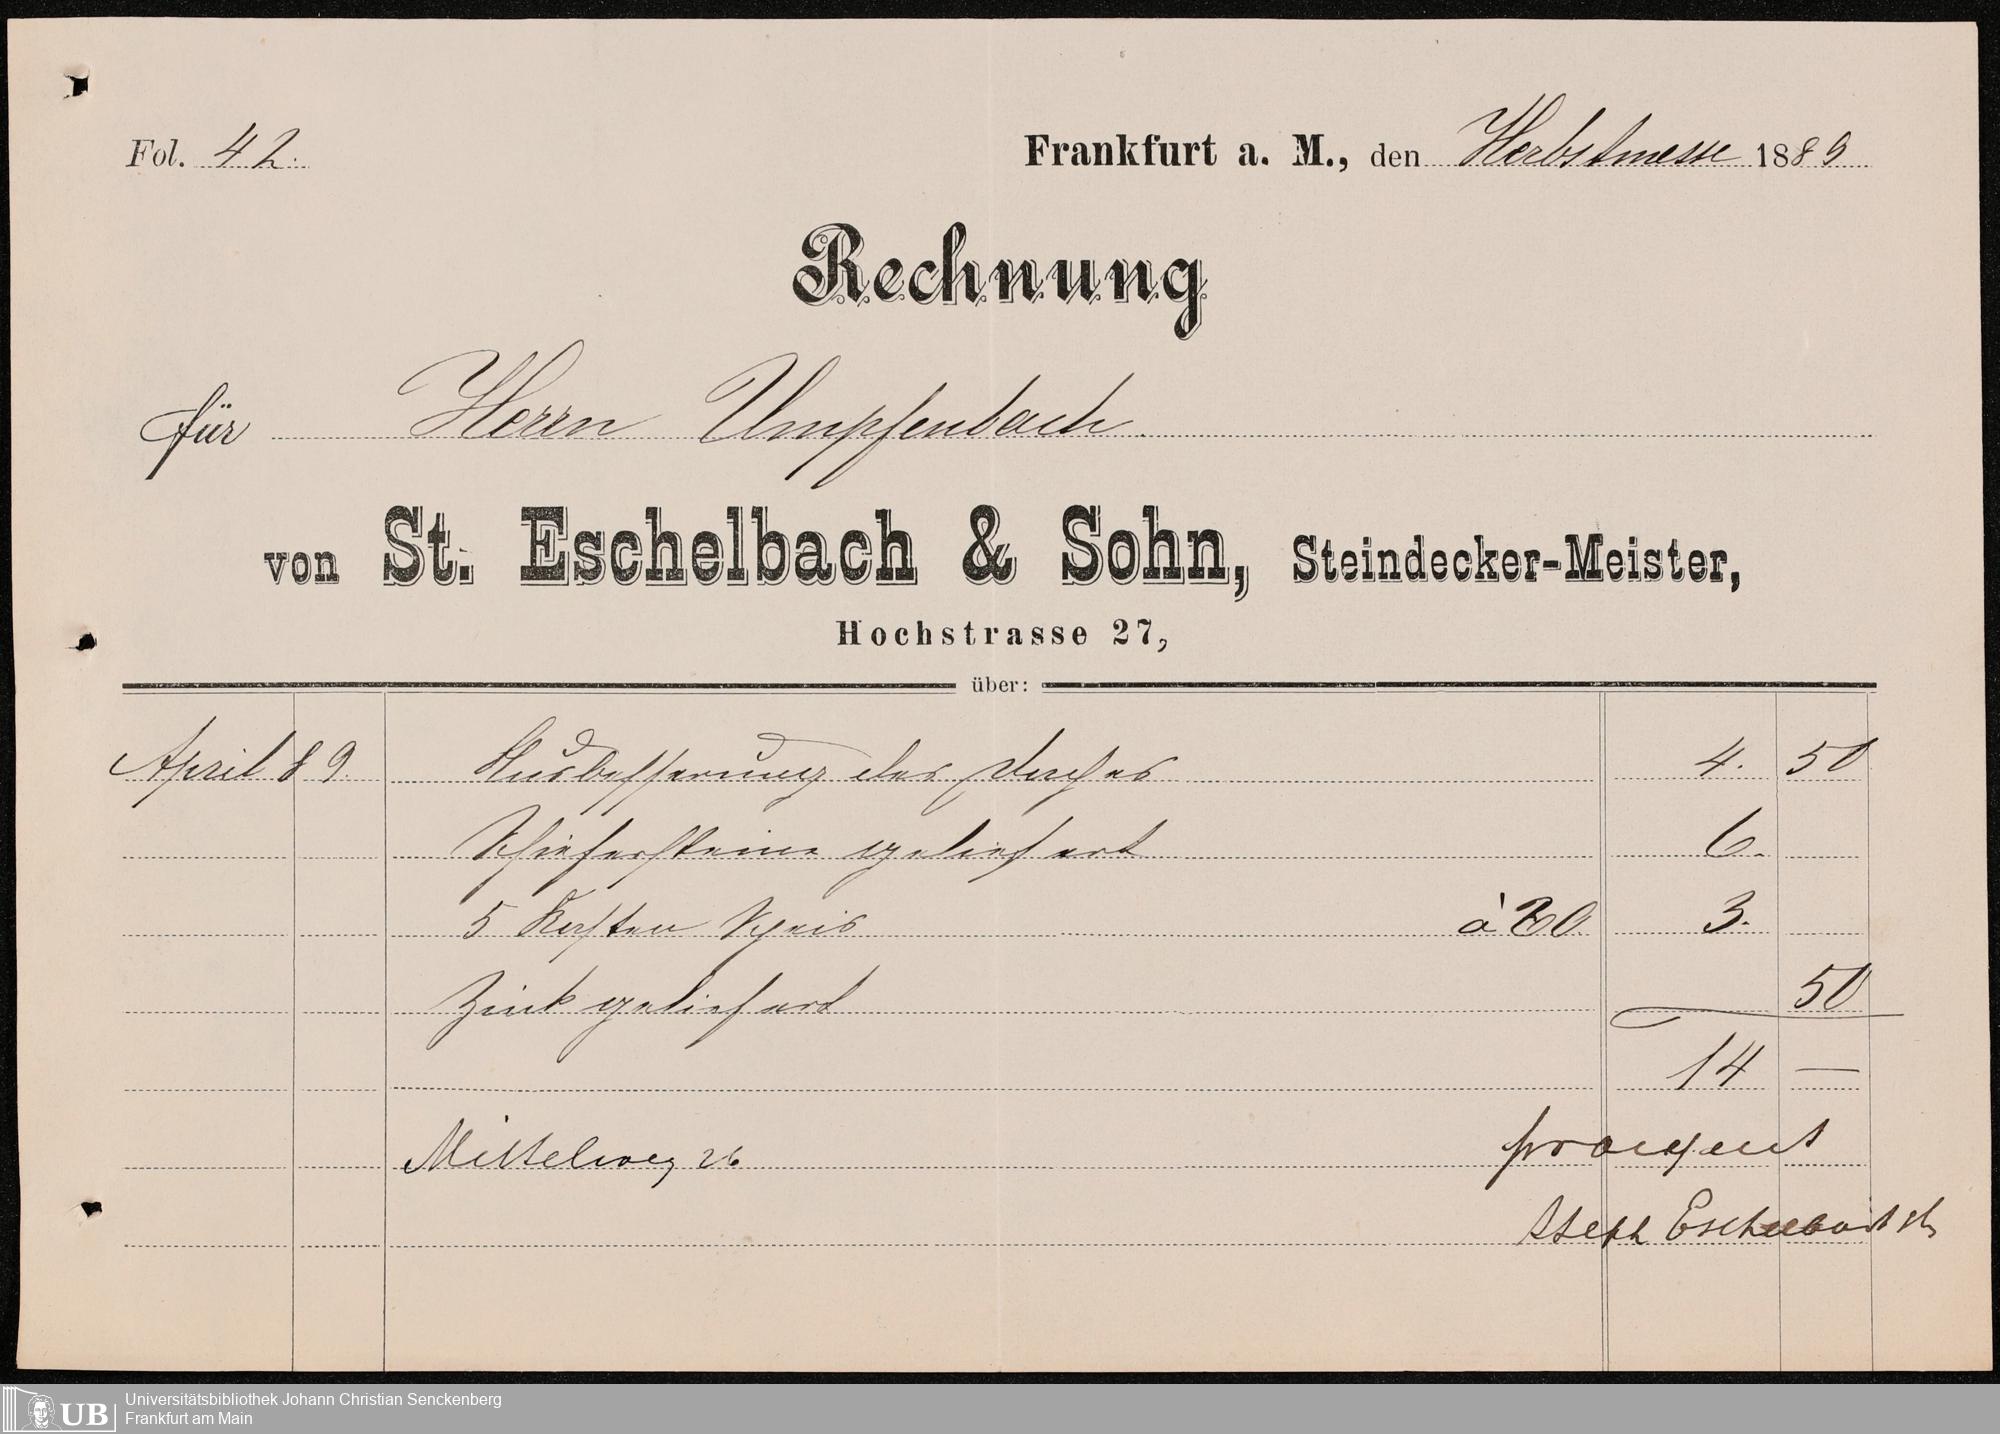 Fol. 42.
Frankfurt a. M., den Herbstmesse 1889
Rechnung
für Herrn Umpfenbach.
von St. Eschelbach & Sohn, Steindecker-Meister,
Hochstrasse 27,
über:
April 89. Ausbesserung des Daches 4. 50
Schiefersteine geliefert 6.
5 Kasten Speis à 60 3.
Zink geliefert 50
14 —
Mittelweg 26
Steph Eschelbach
Universitätsbibliothek Johann Christian Senckenberg
Frankfurt am Main
UB